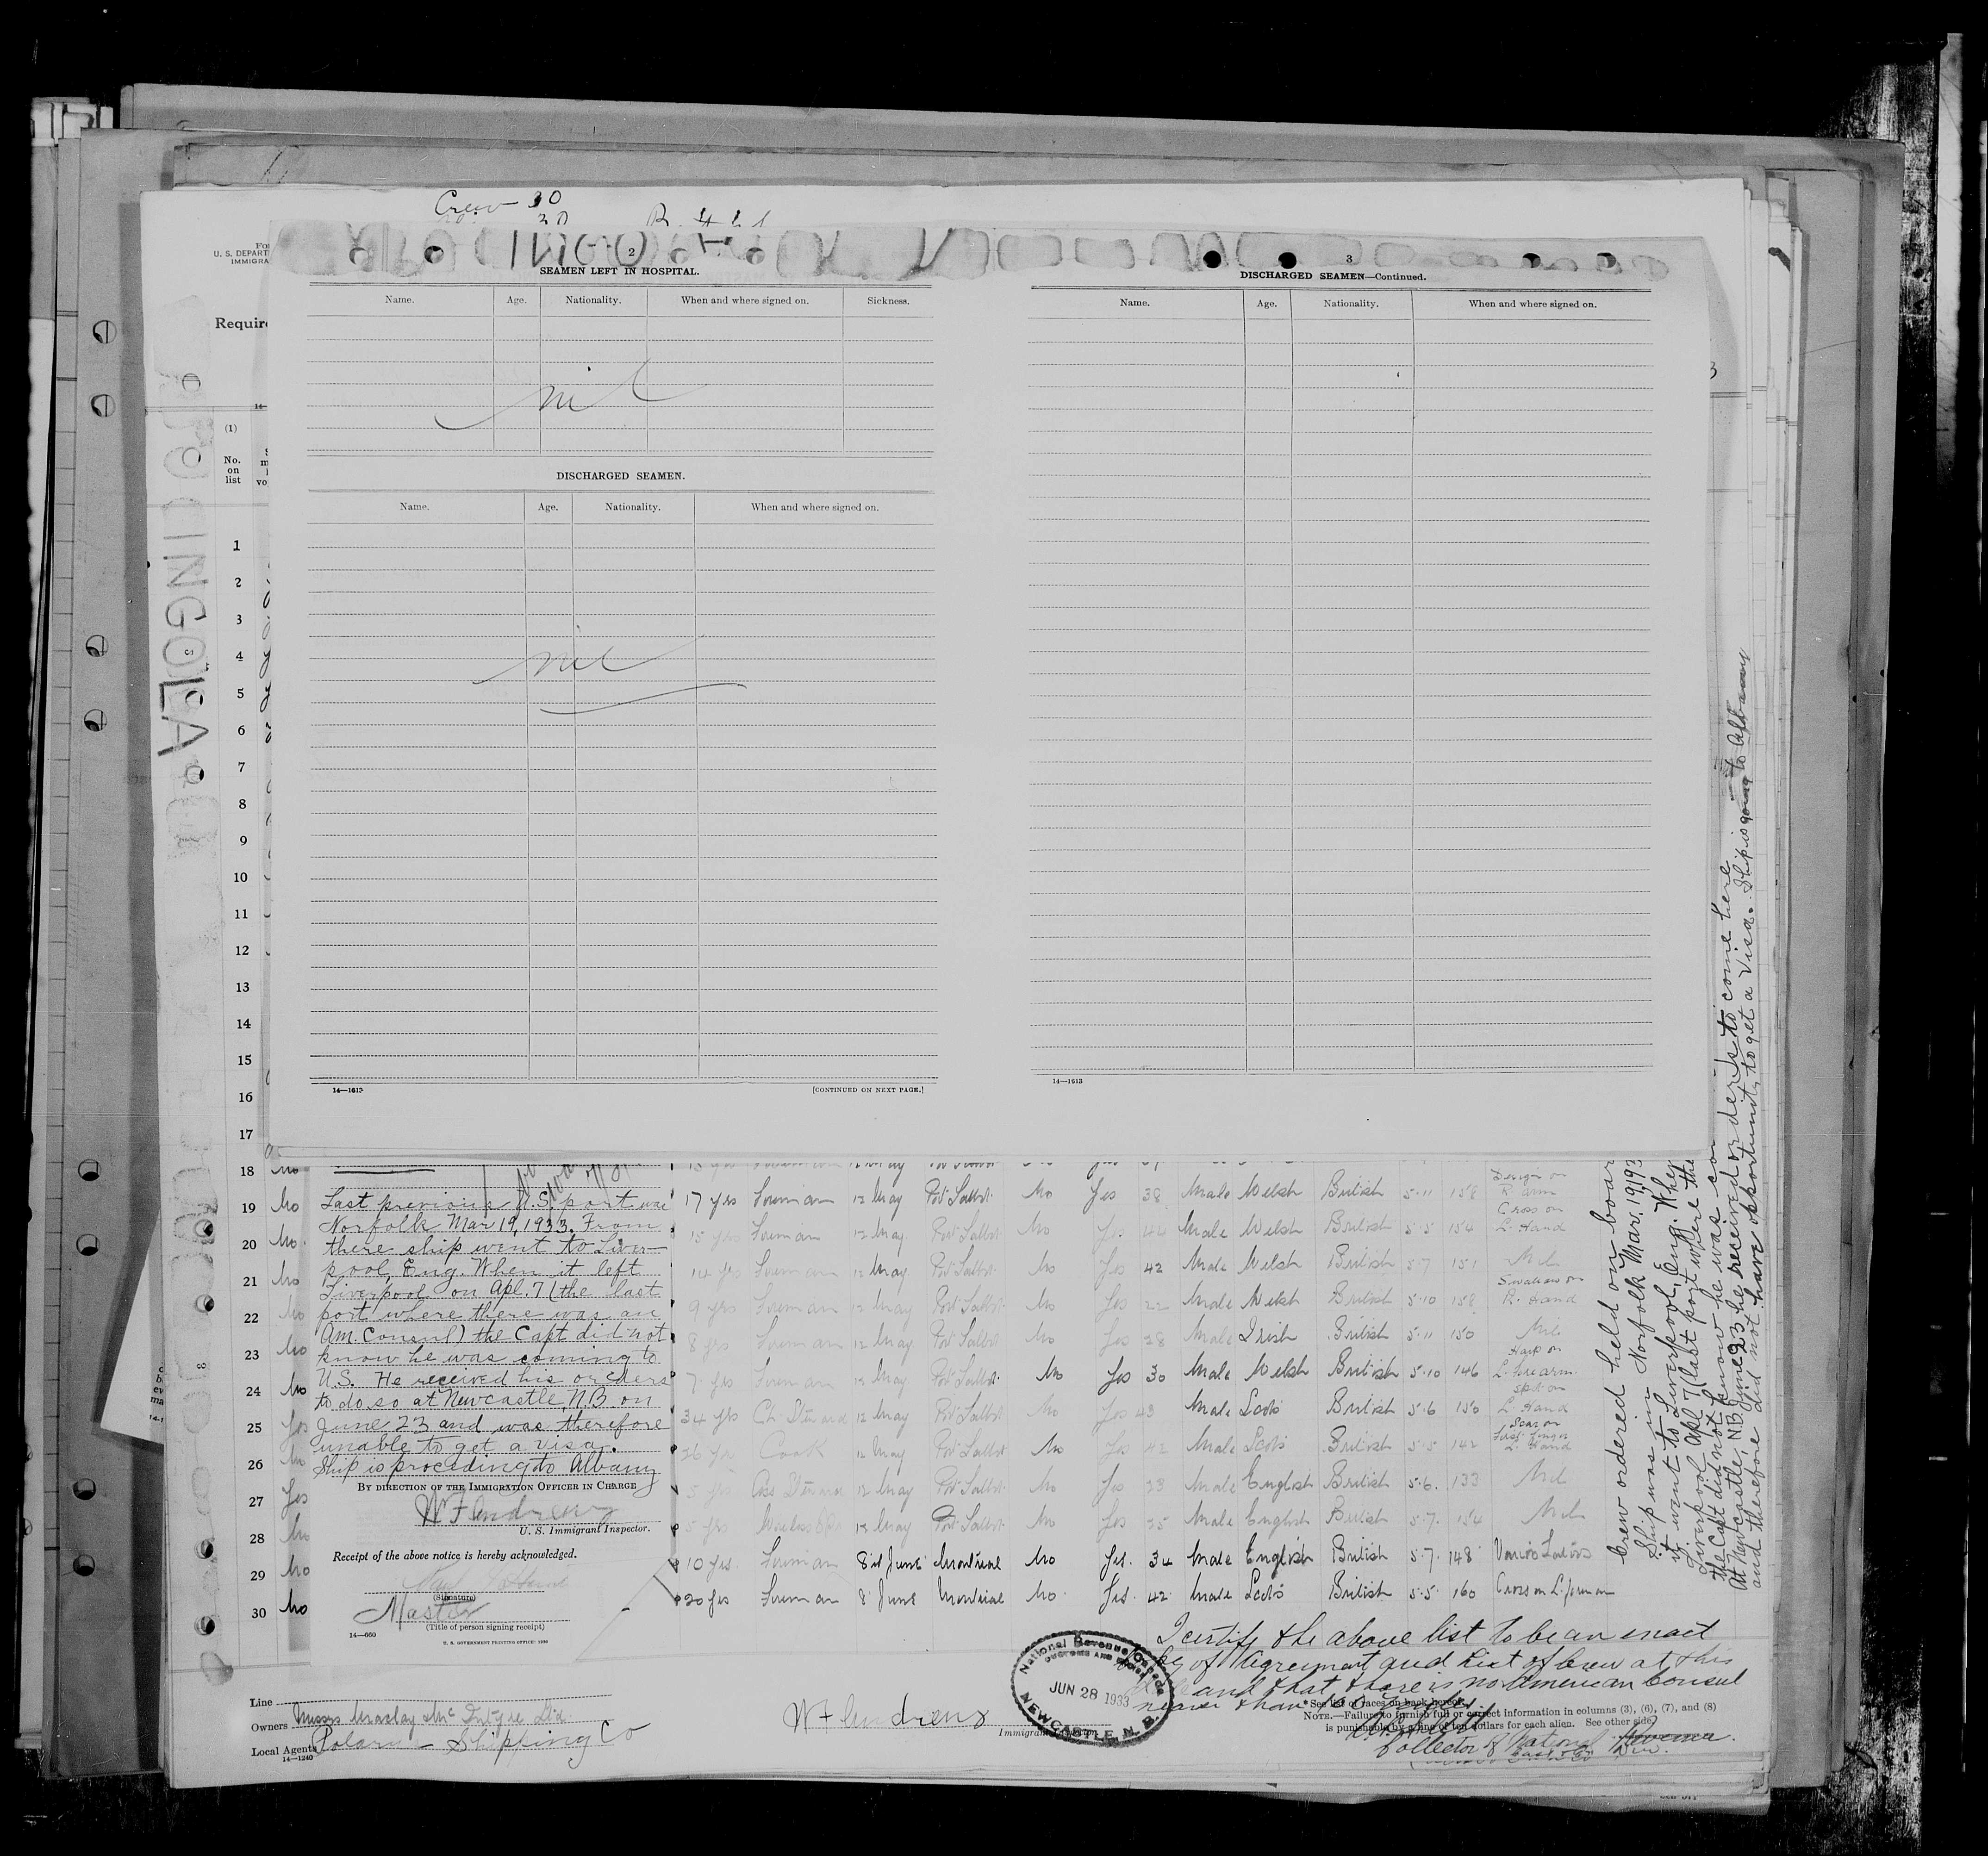 Crew 30
30
For
U. S. DEPART
IMMIGRA
Require
14—
(1)
No.
on
list
INGOLA
2
SEAMEN LEFT IN HOSPITAL.
Name. Age. Nationality. When and where signed on. Sickness.
nil
DISCHARGED SEAMEN.
Name. Age. Nationality. When and where signed on.
nil
14—1613 [CONTINUED ON NEXT PAGE.]
3
DISCHARGED SEAMEN—Continued.
Name. Age. Nationality. When and where signed on.
14—1613
1
2
3
4
5
6
7
8
9
10
11
12
13
14
15
16
17
18 No
19 No 17 yrs Fireman 12 May Port Talbot No Yes 38 Male Welsh British 5·11 158 Design on R. arm
20 No 15 yrs Fireman 12 May Port Talbot No Yes 44 Male Welsh British 5·5 154 Cross on L. Hand
21 No 14 yrs Fireman 12 May Port Talbot No Yes 42 Male Welsh British 5·7 151 Nil
22 No 9 yrs Fireman 12 May Port Talbot No Yes 22 Male Welsh British 5·10 158 Swallow on R. Hand
23 No 8 yrs Fireman 12 May Port Talbot No Yes 28 Male Irish British 5·11 150 Nil
24 No 7 yrs Fireman 12 May Port Talbot No Yes 30 Male Welsh British 5·10 146 Harp on L. forearm
25 Yes 34 yrs Ch. Steward 12 May Port Talbot No Yes 43 Male Scots British 5·6 150 Spot on L. Hand
26 No 26 yrs Cook 12 May Port Talbot No Yes 42 Male Scots British 5·5 142 Scar on first finger L. Hand
27 Yes 5 yrs Ass Steward 12 May Port Talbot No Yes 23 Male English British 5·6. 133 Nil
28 No 5 yrs Wireless Opr 12 May Port Talbot No Yes 25 Male English British 5·7. 154 Nil
29 No 10 yrs. Fireman 8th June Montreal No Yes. 34 Male English British 5·7. 148
30 No 20 yrs Fireman 8 June Montreal No. Yes. 42 Male Scots British 5·5. 160 Cross on L. forearm
Last previous U.S. port was
Norfolk Mar 19, 1933. From
there ship went to Liver-
pool, Eng. When it left
Liverpool on Apl. 7 (the last
port where there was an
Am. Consul) the Capt did not
know he was coming to
U.S. He received his orders
to do so at Newcastle, N.B. on
June 23 and was therefore
unable to get a visa.
Ship is proceding to Albany
BY DIRECTION OF THE IMMIGRATION OFFICER IN CHARGE
W F Andrews
U. S. Immigrant Inspector.
Receipt of the above notice is hereby acknowledged.
(Signature)
Master
(Title of person signing receipt)
14—660
U. S. GOVERNMENT PRINTING OFFICE: 1930
Crew ordered held on boar
Ship was in Norfolk Mar. 19, 193
it went to Liverpool, Eng. When
Liverpool Apl 7 (last port where the
the Capt did not know he was com
At Newcastle, N.B. June 23 he received orders to come here
and therefore did not have opportunity to get a visa. Ship is going to Albany
I certify the above list to be an exact
copy of Agreement and List of Crew at this
and that there is no American Consul
nearer than
Collector of National Revenue
National Revenue Canada
CUSTOMS AND EXCISE
JUN 28 1933
NEWCASTLE, N. B.
Line
Owners Messrs Maclay & Mc Intyre Ltd
Local Agents Polarus Shipping Co
14—1240
W F Andrews
Immigrant Inspector.
* See list of races on back hereof.
NOTE.—Failure to furnish full or correct information in columns (3), (6), (7), and (8)
is punishable by a fine of ten dollars for each alien. See other side.